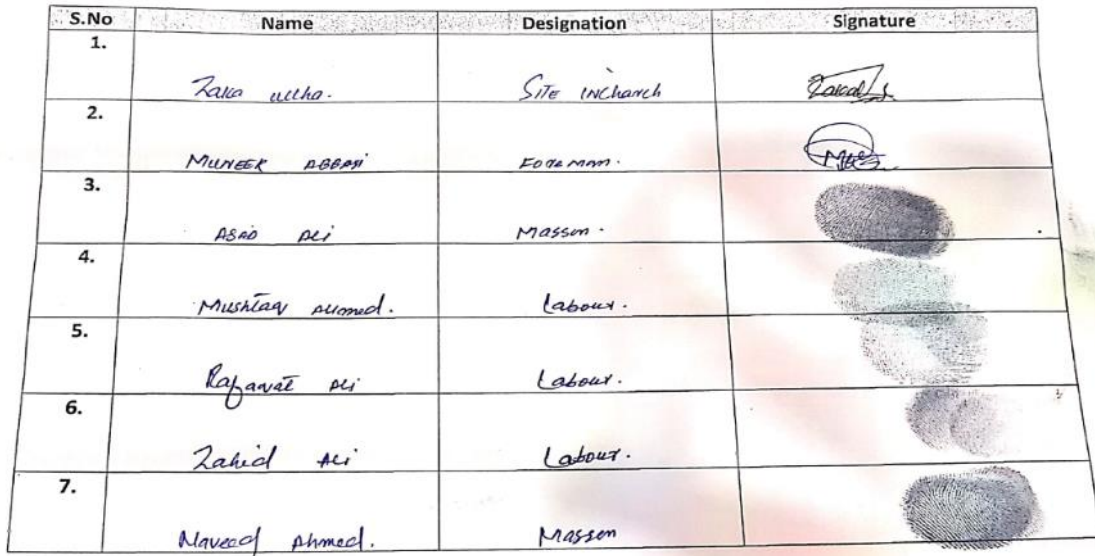 S.No Name Designation Signature
1.
Zaka ullha. SITE INCHARCH
2.
MUNEER ABBASI FOREMAN.
3.
ASAD ALi Masson.
4.
Mushtaq Ahmed. Labour.
5.
Rafaqat Ali Labour.
6.
Zahid Ali Labour.
7.
Naveed Ahmed. Masson